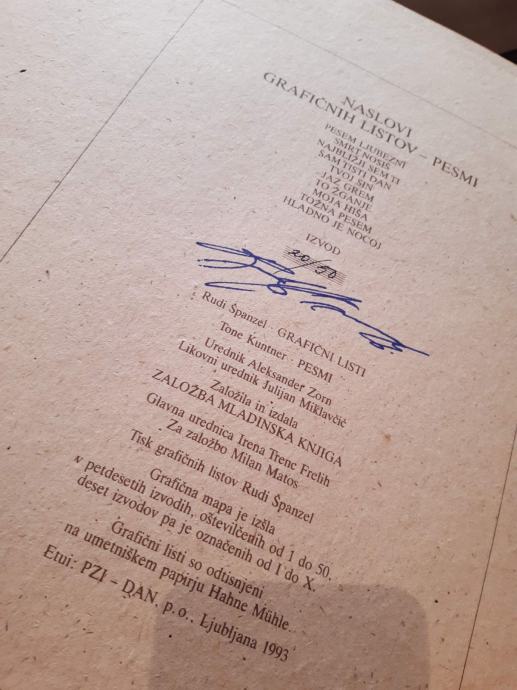 NASLOVI
GRAFIČNIH LISTOV – PESMI
PESEM LJUBEZNI
SMRT NOSIŠ
NAJBLIŽJI SEM TI
SAM TISTI DAN
TVOJ SIN
JAZ GREM
TO ŽGANJE
MOJA HIŠA
TOŽNA PESEM
HLADNO JE NOCOJ
IZVOD
20/50
Rudi Španzel · GRAFIČNI LISTI
Tone Kuntner · PESMI
Urednik Aleksander Zorn
Likovni urednik Julijan Miklavčič
Založila in izdala
ZALOŽBA MLADINSKA KNJIGA
Glavna urednica Irena Trenc Frelih
Za založbo Milan Matos
Tisk grafičnih listov Rudi Španzel
Grafična mapa je izšla
v petdesetih izvodih, oštevilčenih od 1 do 50,
deset izvodov pa je označenih od I do X.
Grafični listi so odtisnjeni
na umetniškem papirju Hahne Mühle.
Etui: PZI – DAN, p.o., Ljubljana 1993